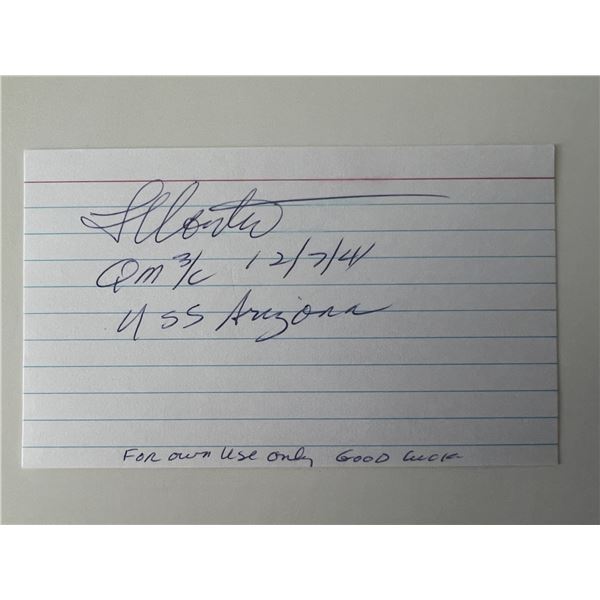 QM 3/c 12/7/41
USS Arizona
For own use only Good Luck